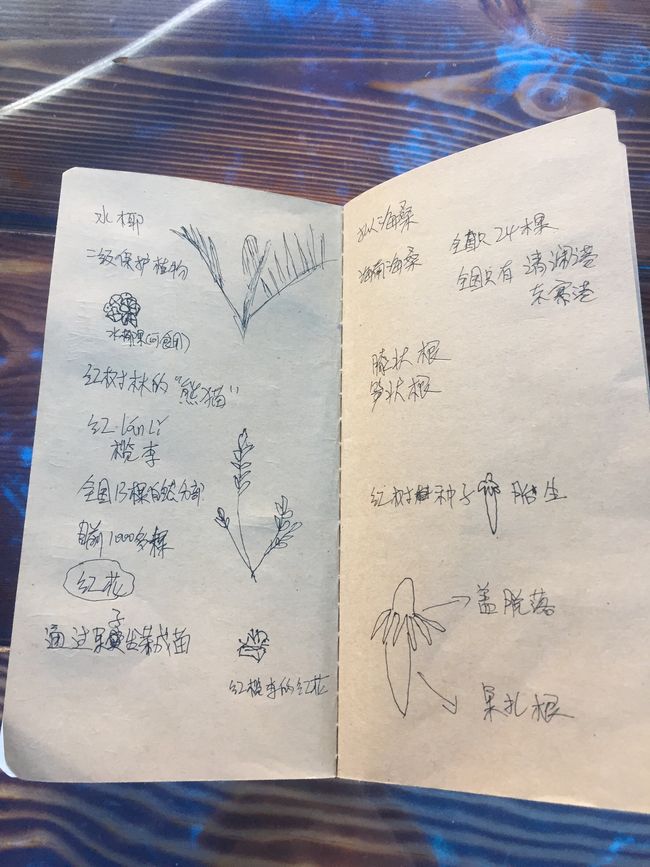 水椰
二级保护植物
水椰果(可食用)
红树林的“熊猫”
红 lán Lǐ
榄李
全国13棵自然分部
目前1000多棵
红花
通过果子 成苗
红榄李的红花
拟海桑
全国只24棵
海南海桑
全国只有 清澜港
东寨港
膝状根
笋状根
红树 种子 胎生
盖脱落
果扎根